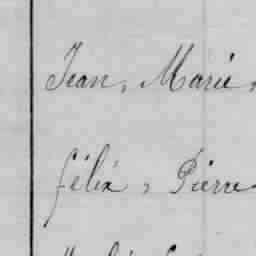 Jean, Marie,
félix, Pierre